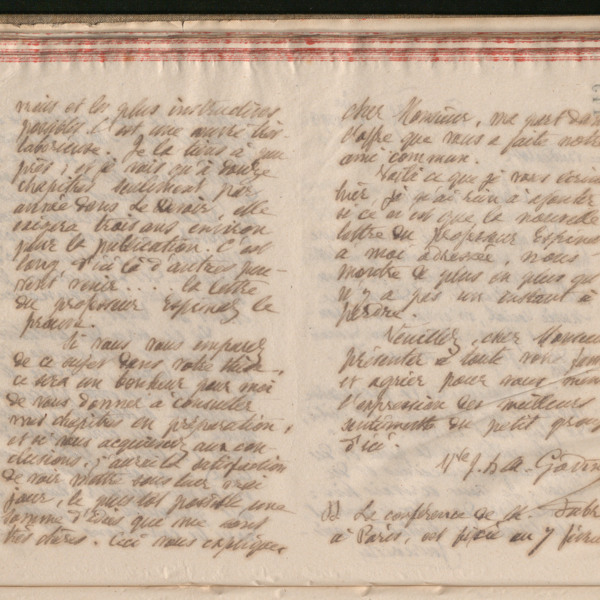 mieux et les plus instructives
possible. C'est une œuvre très
laborieuse. Je la livre à peu
près, et je vois qu'à douze
chapitres seulement par
année dans Le Devoir, elle
exigera trois ans environ
pour la publication. C'est
long d'ici là d'autres peu-
vent venir..... la lettre
du professeur Espinas le
prouve.
Si vous vous emparez
de ce sujet dans votre thèse,
ce sera un bonheur pour moi
de vous donner à consulter
mes chapitres en préparation,
et si vous acquiescez aux con-
clusions, j'aurai la satisfaction
de voir mettre sous leur vrai
jour, le plus tôt possible une
somme d'idées que me sont
très chères. Ceci vous explique
cher Monsieur, ma part dans
l'offre que vous a faite notre
ami commun.
Voilà ce que je vous écrivais
hier, je n'ai rien à ajouter
si ce n'est que la nouvelle
lettre du professeur Espinas
a moi adressée, nous
montre de plus en plus qu'
il n'y a pas un instant à
perdre.
Veuillez, cher Monsieur
présenter à toute votre famille
et agréer pour vous même
l'expression des meilleurs
sentiments du petit groupe
d'ici.
Vve J. B. A. Godin
La conférence de M. Fabre
à Paris, est fixée au 7 février